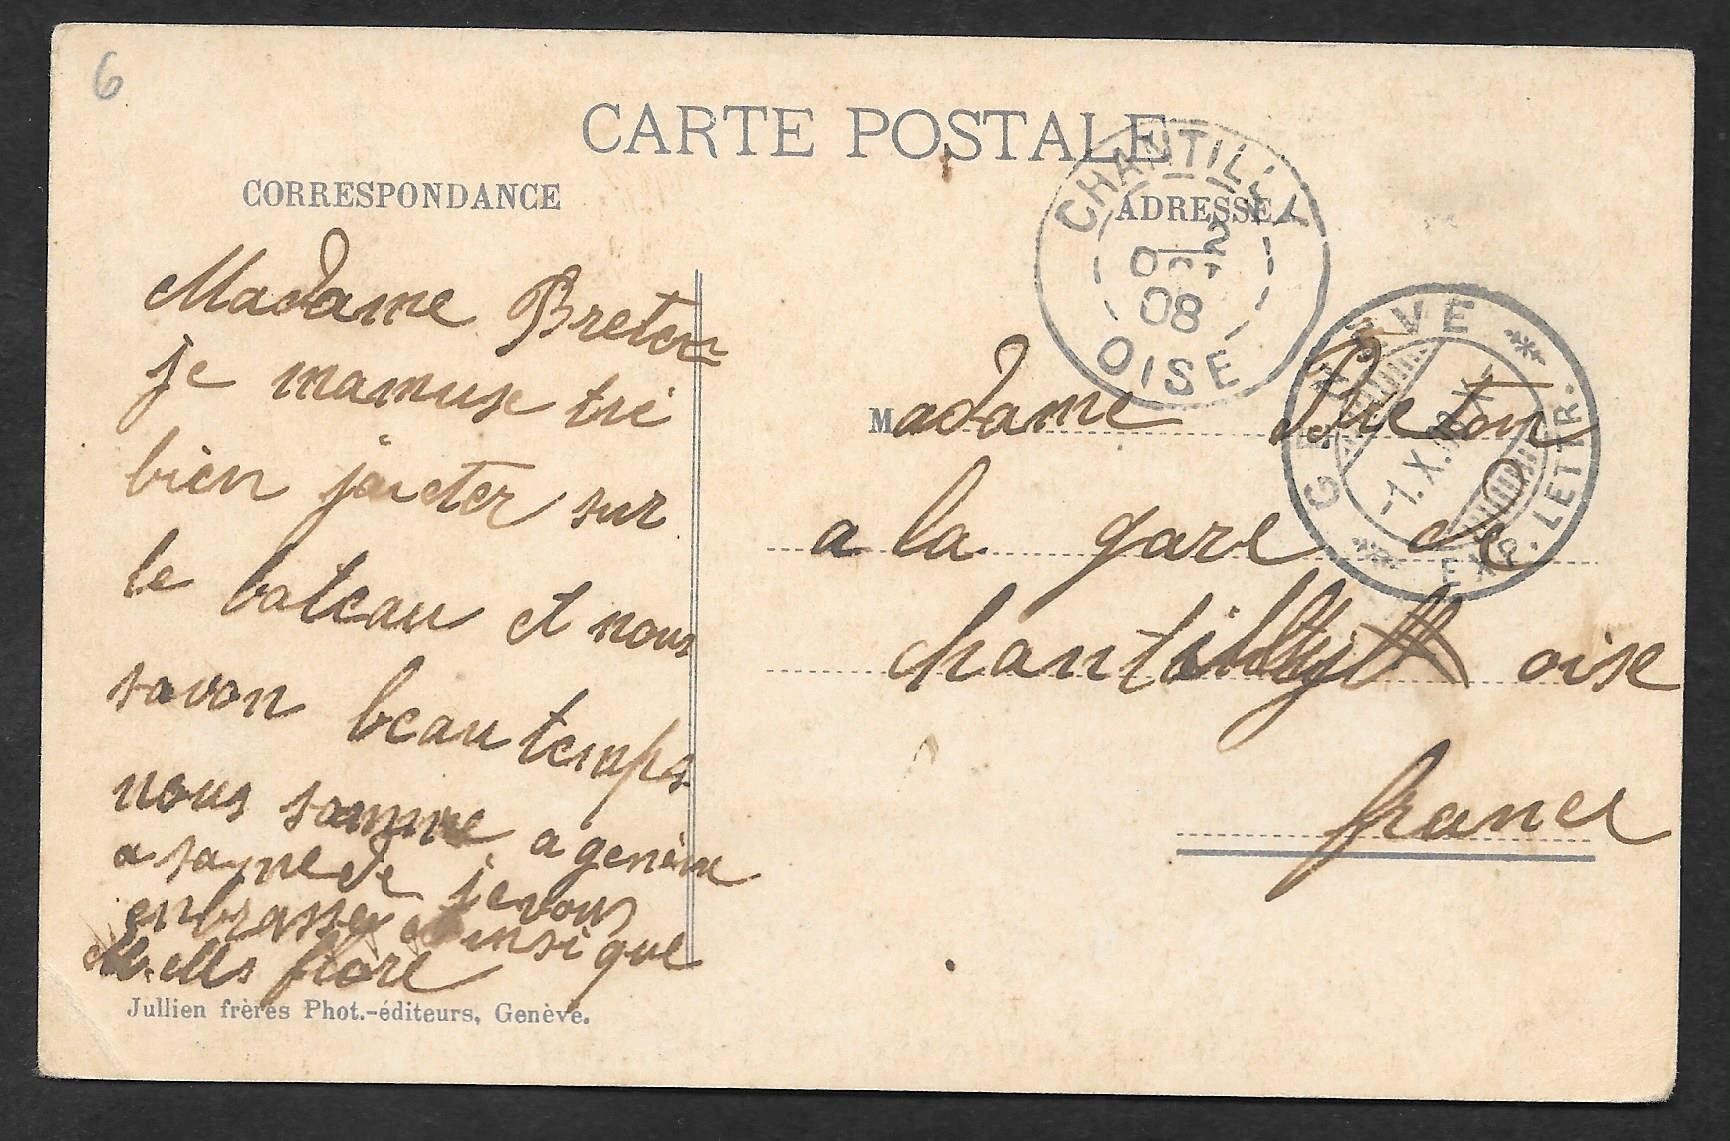 6
CARTE POSTALE
CORRESPONDANCE
ADRESSE
CHANTILLY
2
OCT
08
OISE
GENÈVE
-1.X.08.X-
EXP. LETTR.
Madame Breton
je mamuse tré
bien jaieter sur
le bateau et nous
savon beau temps
nous somme a genève
a samede je vous
enbrasse ainsi que
Melle
Madame Breton
a la gare de
chantilly oise
france
Jullien frères Phot.-éditeurs, Genève.